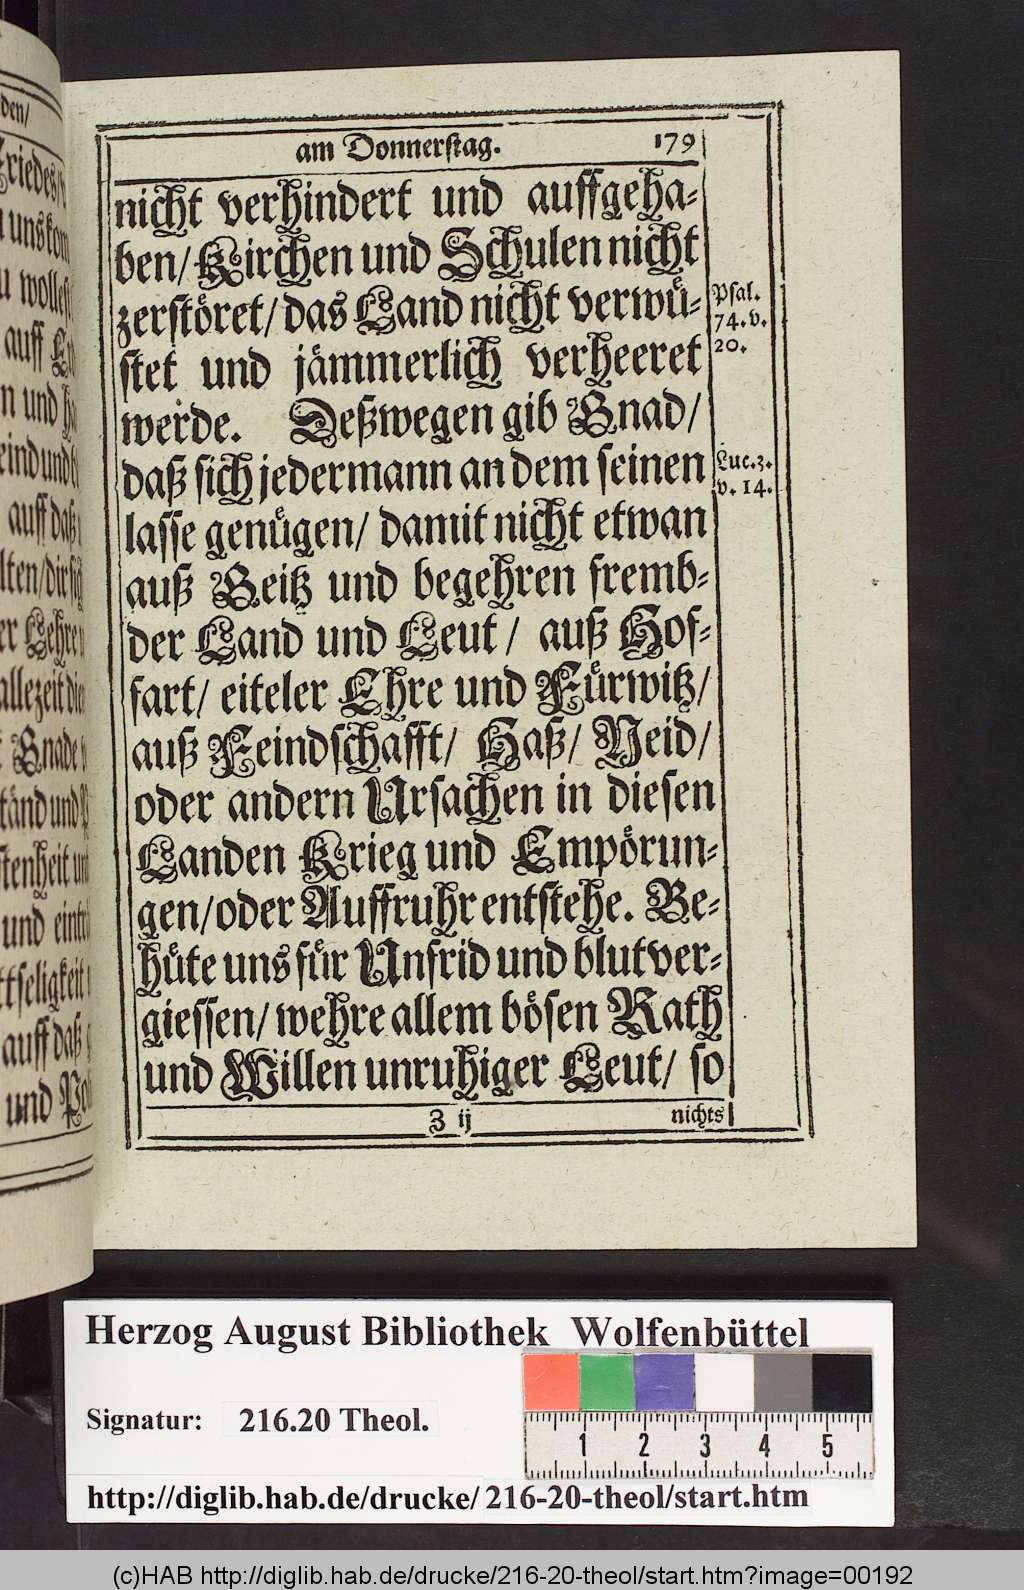 am Donnerstag. 179
nicht verhindert und auffgeha-
ben/ Kirchen und Schulen nicht
zerstöret/ das Land nicht verwü-
stet und jämmerlich verheeret
werde. Deßwegen gib Gnad/
daß sich jedermann an dem seinen
lasse genügen/ damit nicht etwan
auß Geitz und begehren fremb-
der Land und Leut/ auß Hof-
fart/ eiteler Ehre und Fürwitz/
auß Feindschafft/ Haß/ Neid/
oder andern Ursachen in diesen
Landen Krieg und Empörun-
gen/ oder Auffruhr entstehe. Be-
hüte uns für Unfrid und blutver-
giessen/ wehre allem bösen Rath
und Willen unruhiger Leut/ so
Z ij nichts
Psal.
74. v.
20.
Luc. 3.
v. 14.
den/
riedes/
uns kom
u wolles
auff Er
n und ha
eind und
auff daß
lten/ dir
er Lehre
allezeit die
Gnade
tänd und
stenheit
und
ttseligkeit
auff daß
und
Herzog August Bibliothek Wolfenbüttel
Signatur: 216.20 Theol.
1 2 3 4 5
http://diglib.hab.de/drucke/216-20-theol/start.htm
(c)HAB http://diglib.hab.de/drucke/216-20-theol/start.htm?image=00192